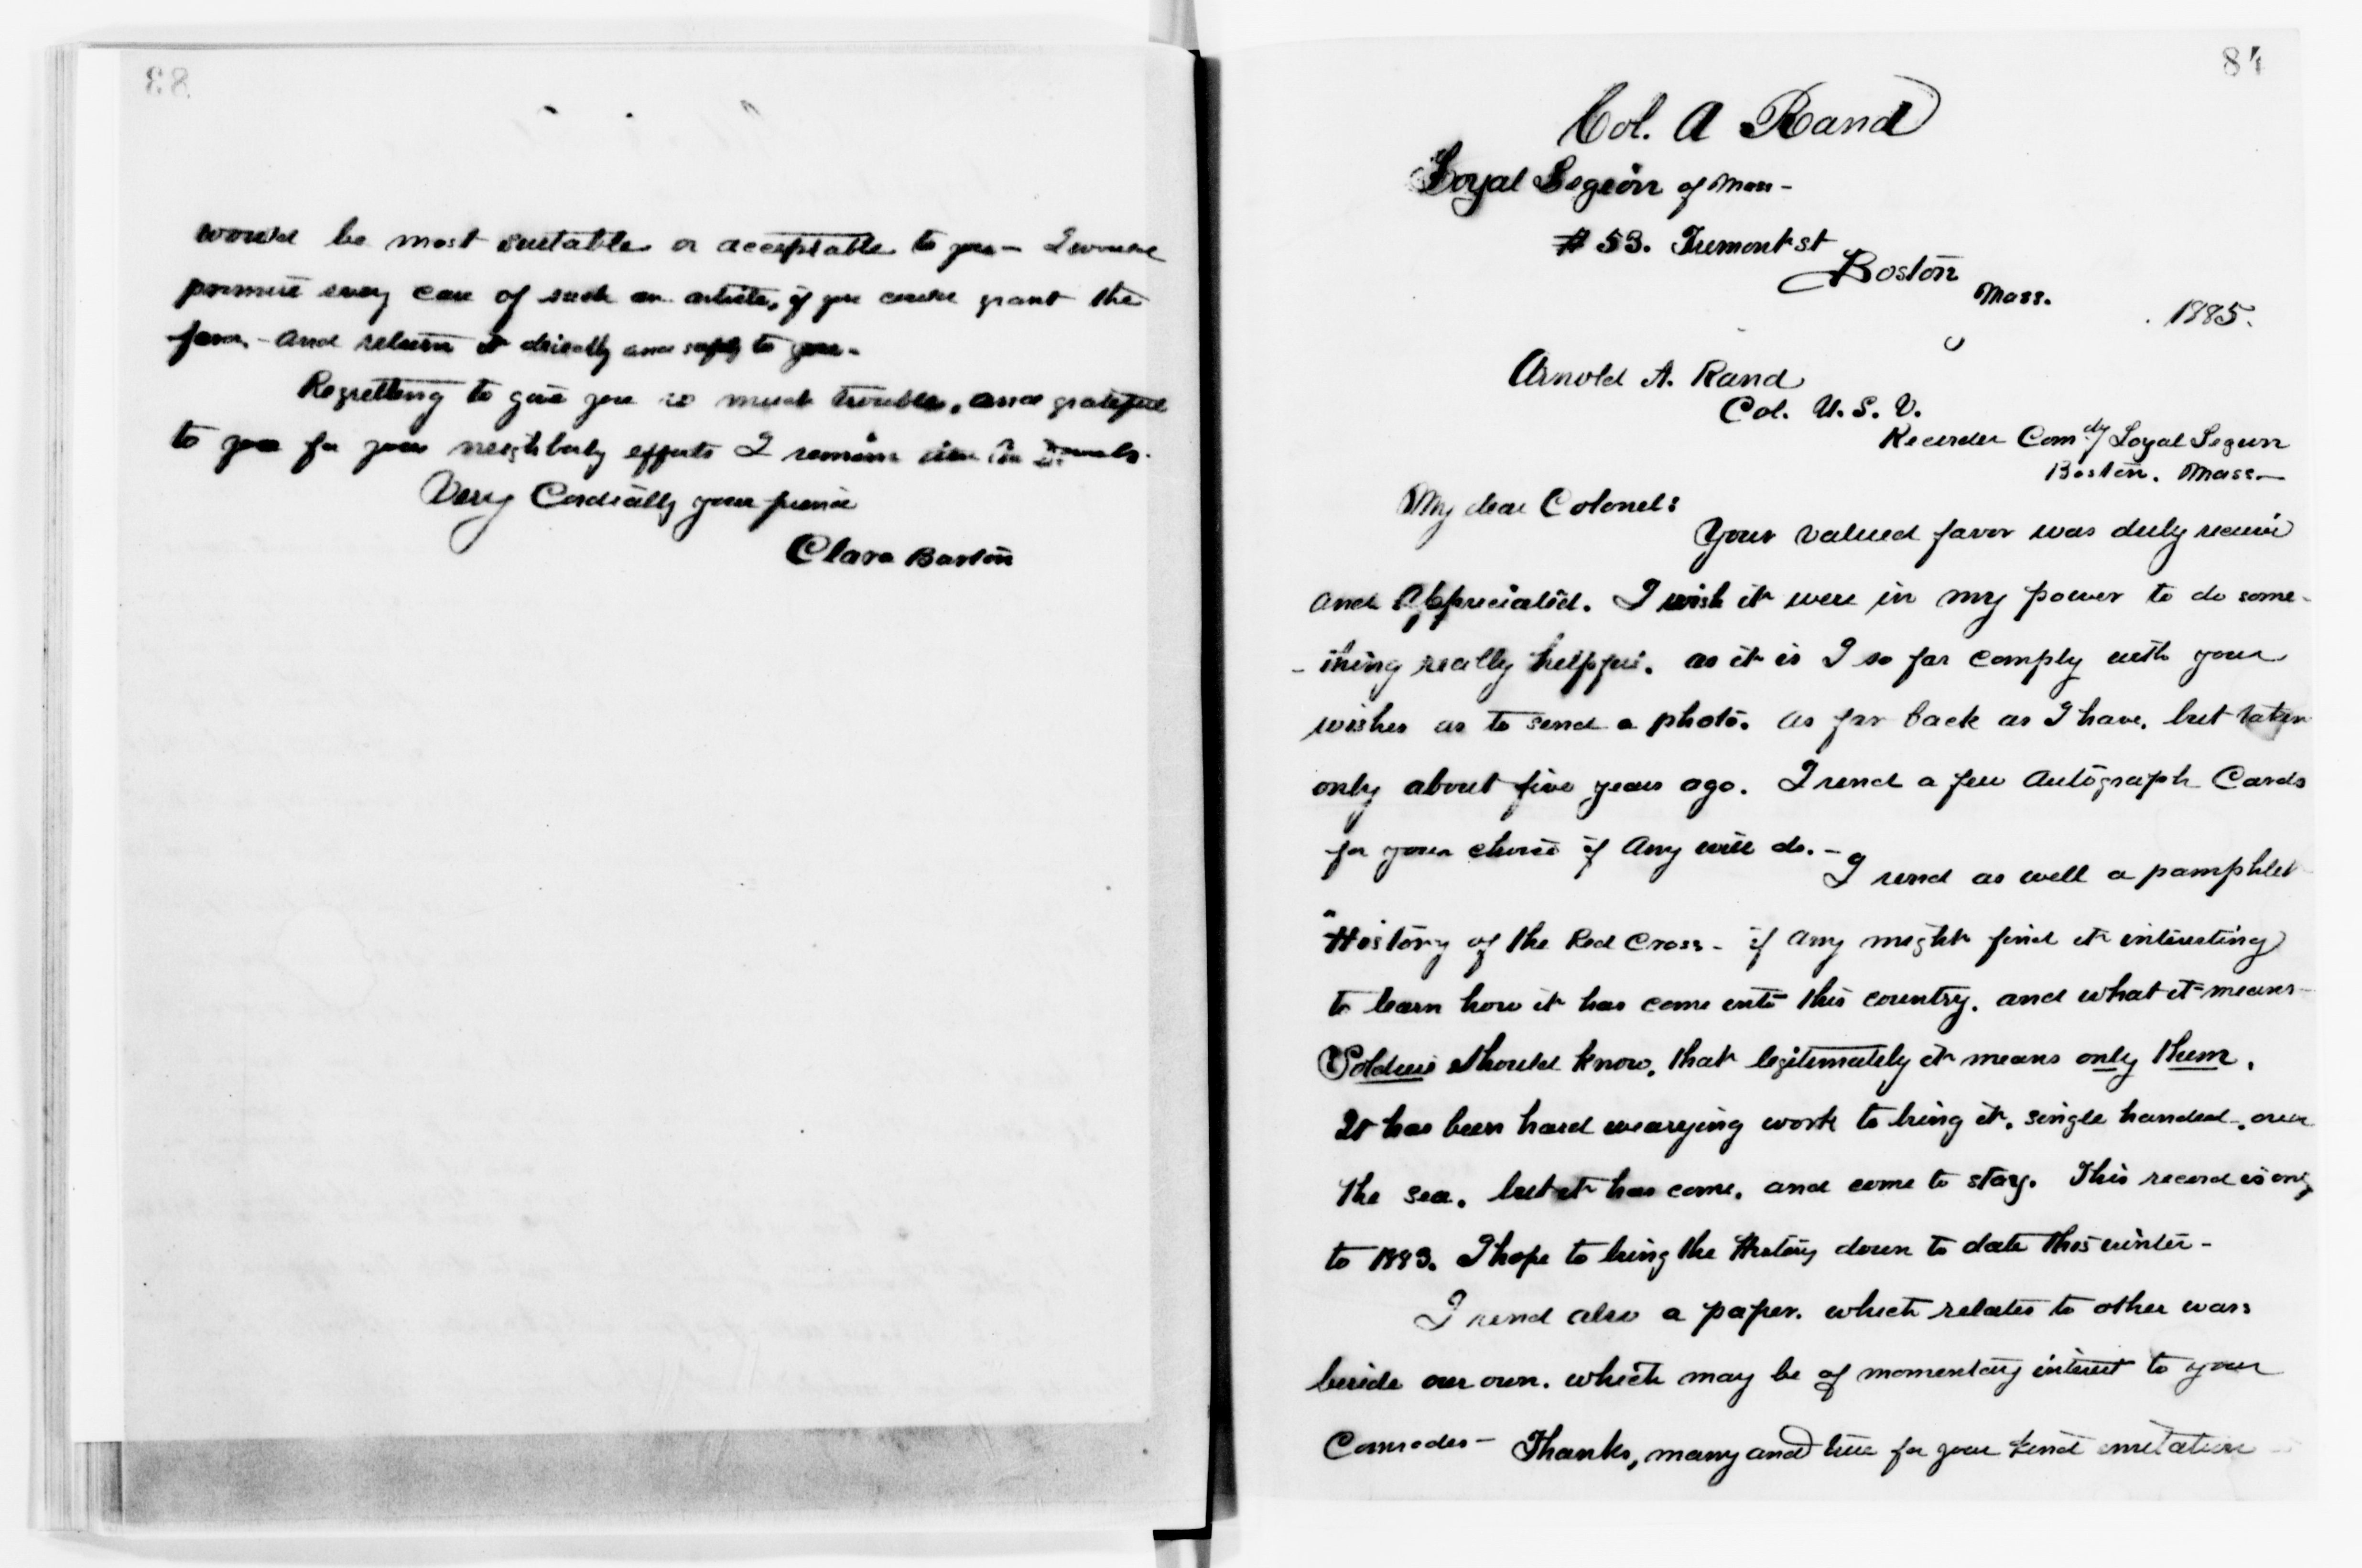 83
would be most suitable or acceptable to you— I would
promise every care of such an article, if you could grant the
favor,—and return it directly and safely to you—
Regretting to give you so much trouble, and grateful
to you for your neighborly efforts I remain
Very Cordially your friend
Clara Barton
84
Col. A Rand
Loyal Legion of Mass—
# 53. Tremont st
Boston
Mass.
1885.
Arnold A. Rand
Col. U. S. V.
Recorder Comdy Loyal Legion
Boston. Mass—
My dear Colonel:
Your valued favor was duly receivd
and appreciated. I wish it were in my power to do some-
-thing really helpful. as it is I so far comply with your
wishes as to send a photo. as far back as I have, but taken
only about five years ago. I send a few Autograph Cards
for your choice if any will do.—
I send as well a pamphlet
"History of the Red Cross— if any might find it interesting
to learn how it has come into this country. and what it means—
Soldiers should know, that legitimately it means only them.
It has been hard wearying work to bring it, single handed, over
the sea, but it has come, and come to stay. This record is only
to 1883. I hope to bring the History down to date this winter—
I send also a paper. which relates to other wars
beside our own. which may be of momentary interest to your
Comrades— Thanks, many and true for your kind invitation